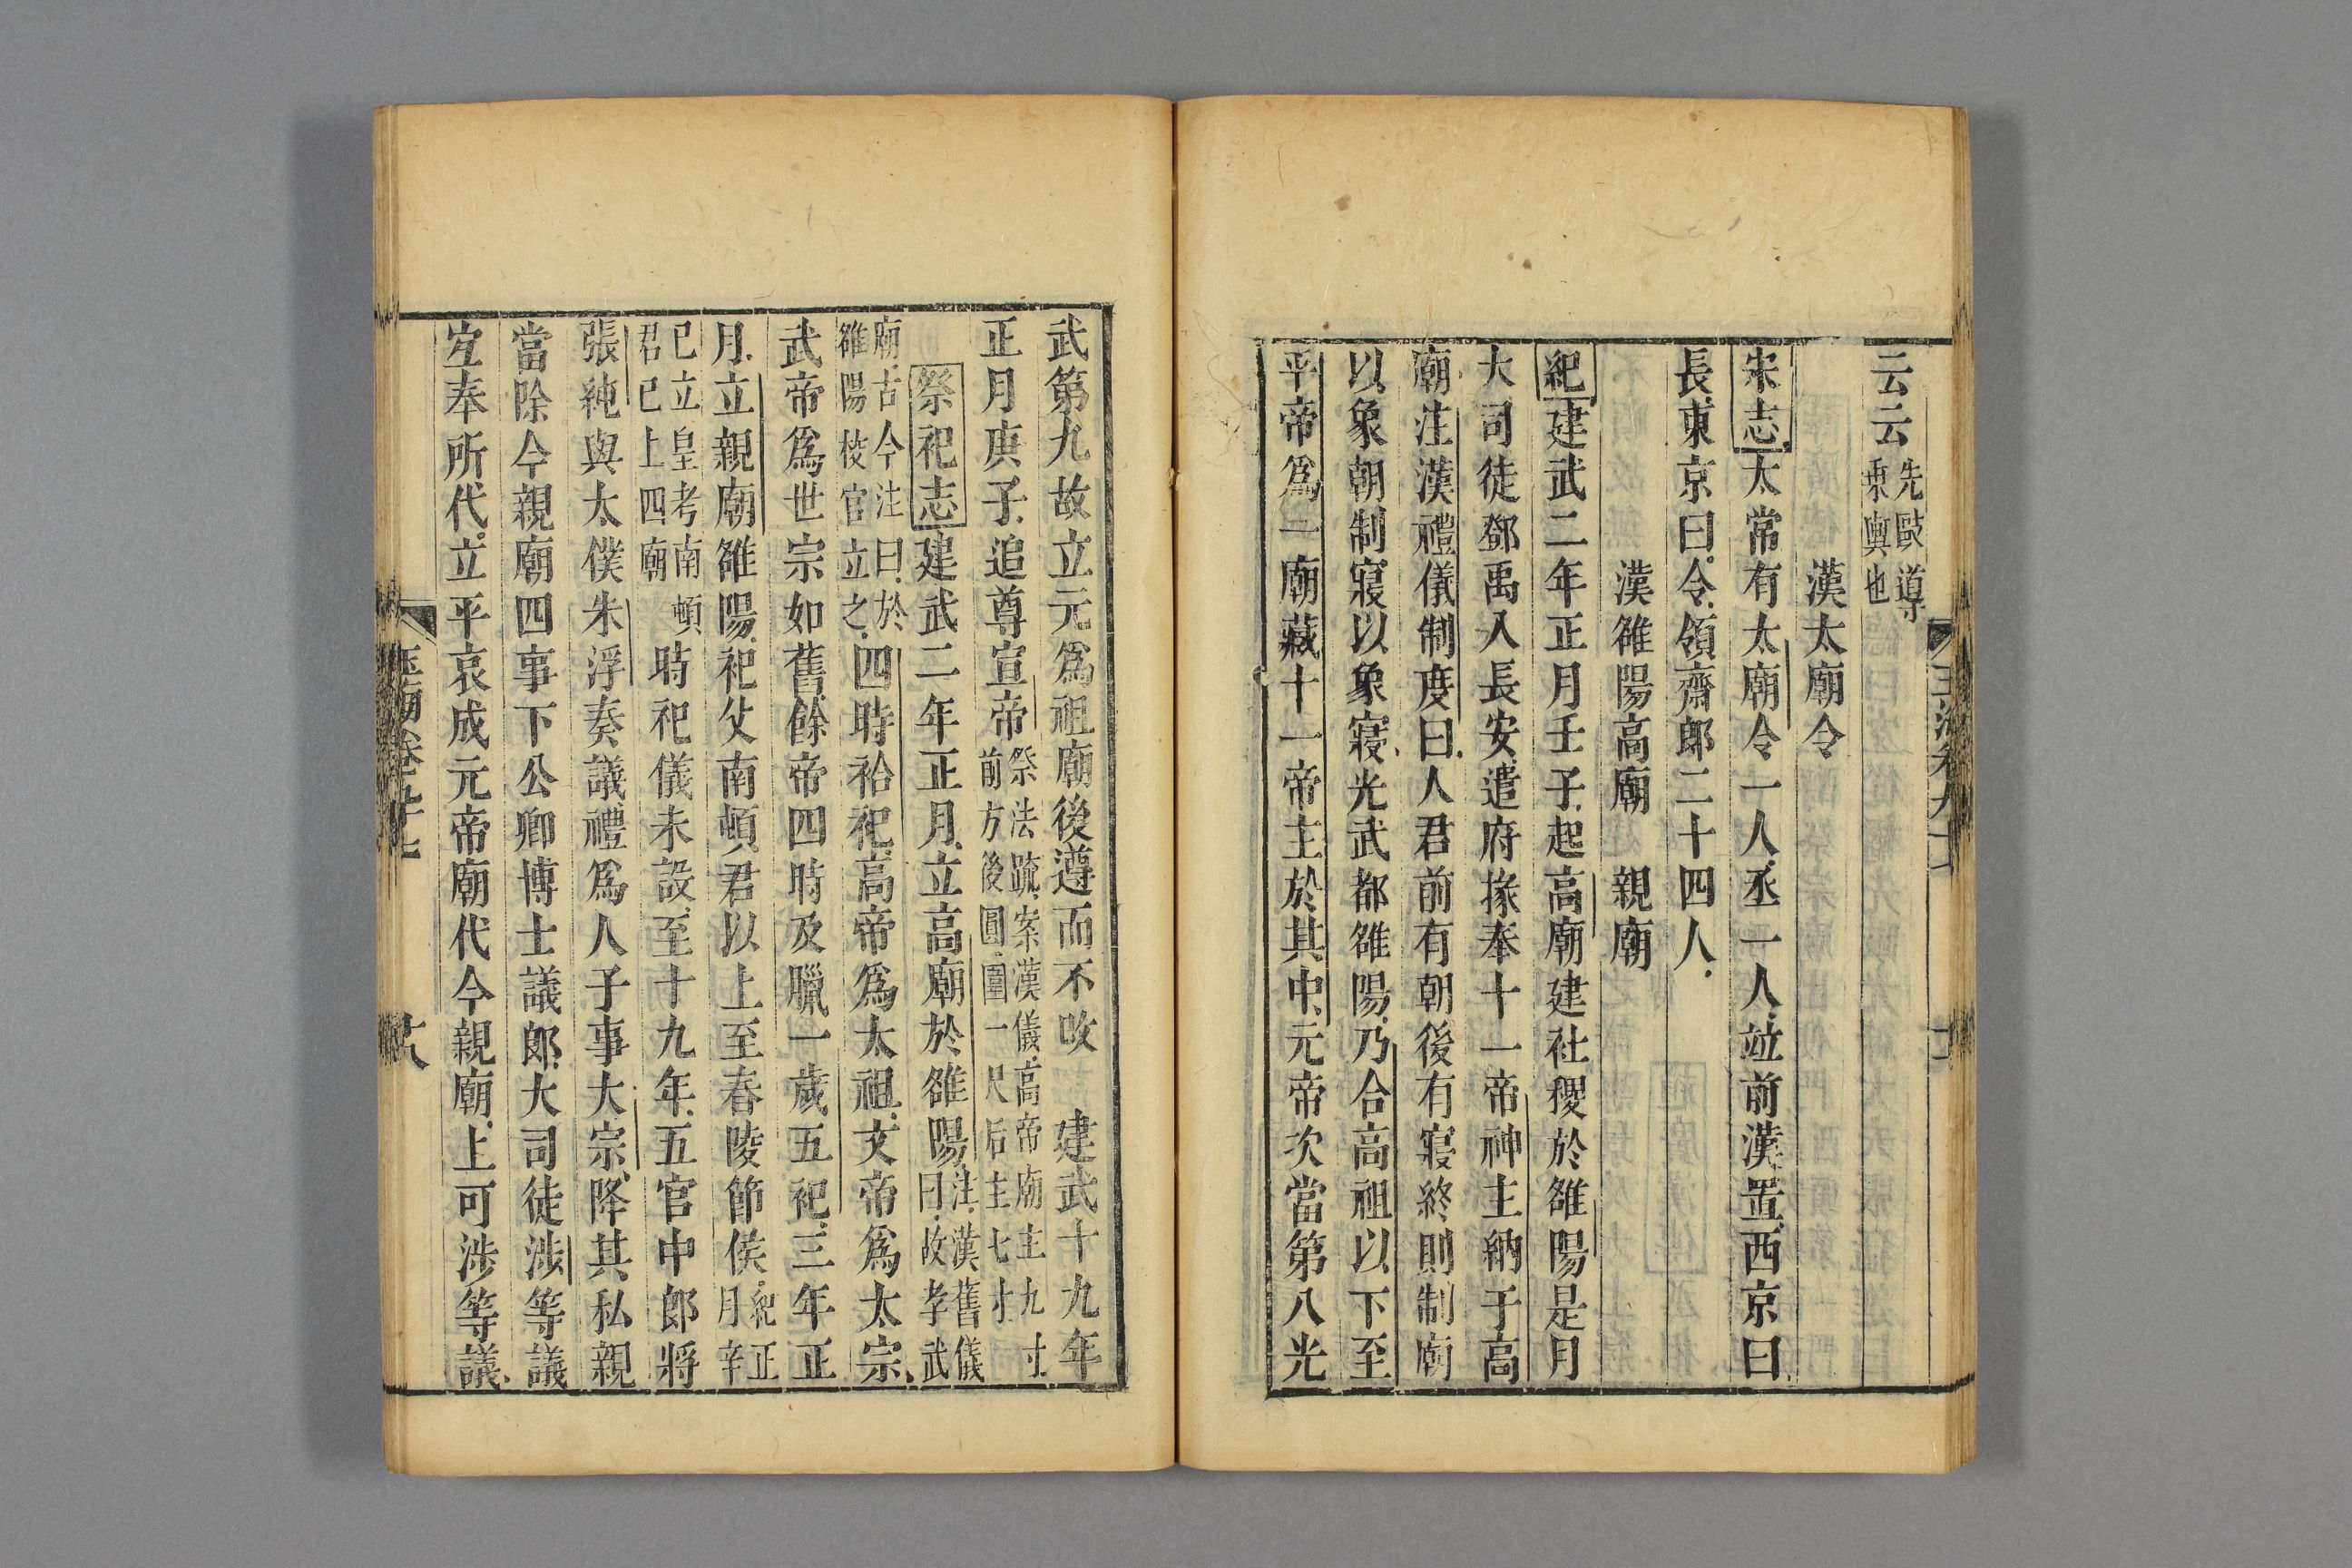 云云先敺導乘輿也
漢太廟令
宋志太常有太廟令一人丞一人竝前漢置西京曰
長東京曰令領齋郎二十四人
漢雒陽高廟　親廟
紀建武二年正月壬子起高廟建社稷於雒陽是月
大司徒鄧禹入長安遣府掾奉十一帝神主納于高
廟注漢禮儀制度曰人君前有朝後有寢終則制廟
以象朝制寢以象寢光武都雒陽乃合高祖以下至
平帝爲一廟藏十一帝主於其中元帝次當第八光
武第九故立元爲祖廟後遵而不改　建武十九年
正月庚子追尊宣帝祭法疏案漢儀高帝廟主九寸前方後圓圍一尺后主七寸
祭祀志建武二年正月立高廟於雒陽注漢舊儀曰故孝武
廟古今注曰於雒陽校官立之四時祫祀高帝爲太祖文帝爲太宗
武帝爲世宗如舊餘帝四時及臘一歲五祀三年正
月立親廟雒陽祀父南頓君以上至舂陵節侯紀正月辛
巳立皇考南頓君已上四廟時祀儀未設至十九年五官中郎將
張純與太僕朱浮奏議禮爲人子事大宗降其私親
當除今親廟四事下公卿博士議郎大司徒涉等議
宐奉所代立平哀成元帝廟代今親廟上可涉等議